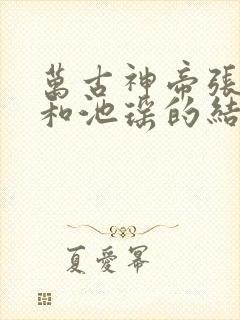 萬古神帝張
和池瑤的結
夏愛冪